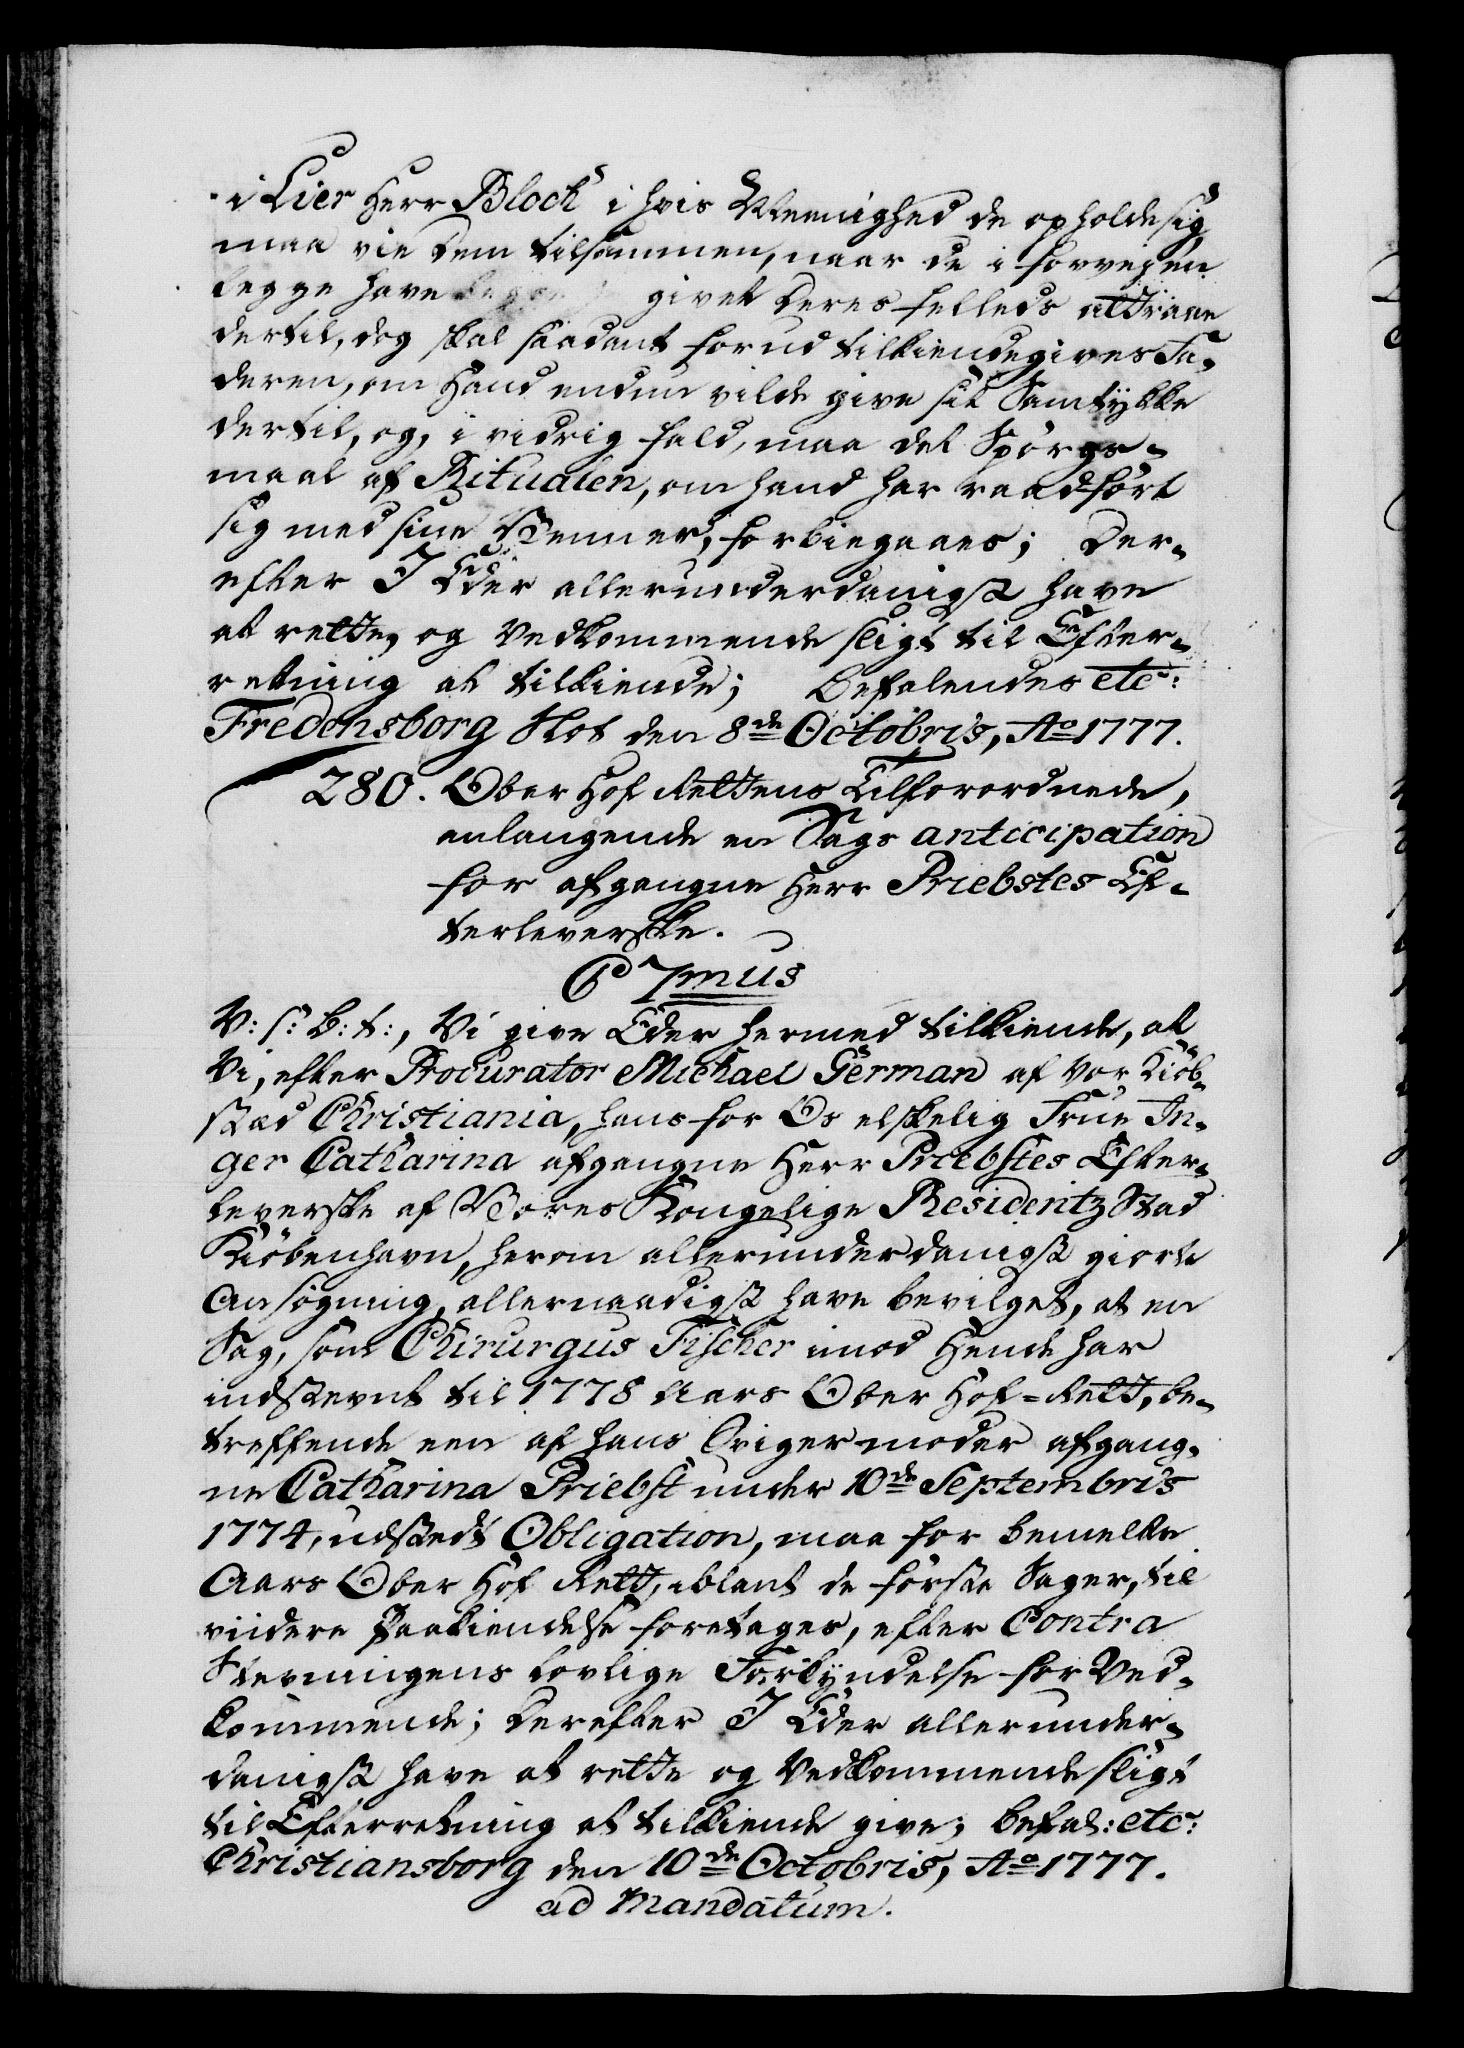 i Lier Herr Bloch i hvis Meenighed de opholde sig
maa vie dem tilsammen, naar de i forvejen
begge have givet deres felleds attraae
dertil, dog skal saadant forud tilkiendegives Fa-
deren, om Hand endnu vilde give sit Samtykke
dertil, og, i vidrig fald, maa det Spörgs-
maal af Ritualen, om hand har raadfört
sig med sine Venner, forbiegaaes; Der-
efter I Eder allerunderdanigst have
at rette, og Vedkommende sligt til Efter-
retning at tilkiende; Befalendes etc:
Fredensborg Slot den 8de Octobris, Ao 1777.
280. Ober Hof Rettens Tilforordnede,
anlangende en Sags anticipation
for afgangne Herr Priebstes Ef-
terleverske.
C 7mus
V: s: B: t:, Vi give Eder hermed tilkiende, at
Vi, efter Procurator Michael German af Vor Kiöb-
stæd Christiania, hans for Os elskelig Frue In-
ger Catharina afgangne Herr Priebstes Efter-
leverske af Vores Kongelige Residentz Stad
Kiöbenhavn, herom allerunderdanigst giorte
Ansögning, allernaadigst have bevilget, at en
Sag, som Chirurgus Fischer imod Hende har
indstevnt til 1778 Aars Ober Hof-Rett, be-
treffende een af hans Svigermoder afgang-
ne Catharina Priebst under 10de Septembris
1774, udstedt Obligation, maa for bemelte
Aars Ober Hof Rett, iblant de förste Sager, til
viidere Paakiendelse foretages, efter Contra
Stevningens lovlige Forkyndelse for Ved-
kommende; Derefter I Eder allerunder-
danigst have at rette og Vedkommende sligt
til Efterretning at tilkiende give; befal: etc:
Christiansborg den 10de Octobris, Ao 1777.
ad Mandatum.